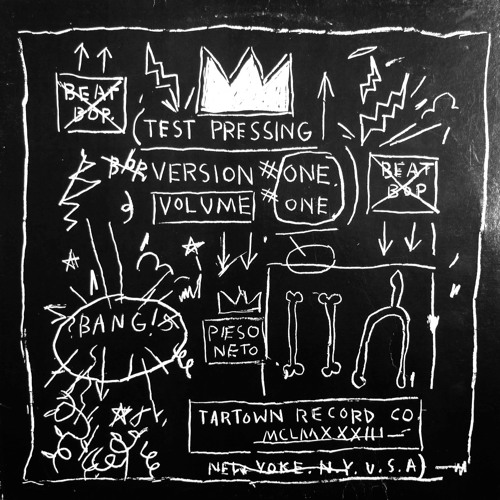 BEAT
BOP
TEST PRESSING
BOP VERSION #ONE
VOLUME # ONE
BEAT
BOP
BANG!
PIESO
NETO
TARTOWN RECORD CO
MCLMXXXIII
NEW YOKE. N.Y. U.S.A